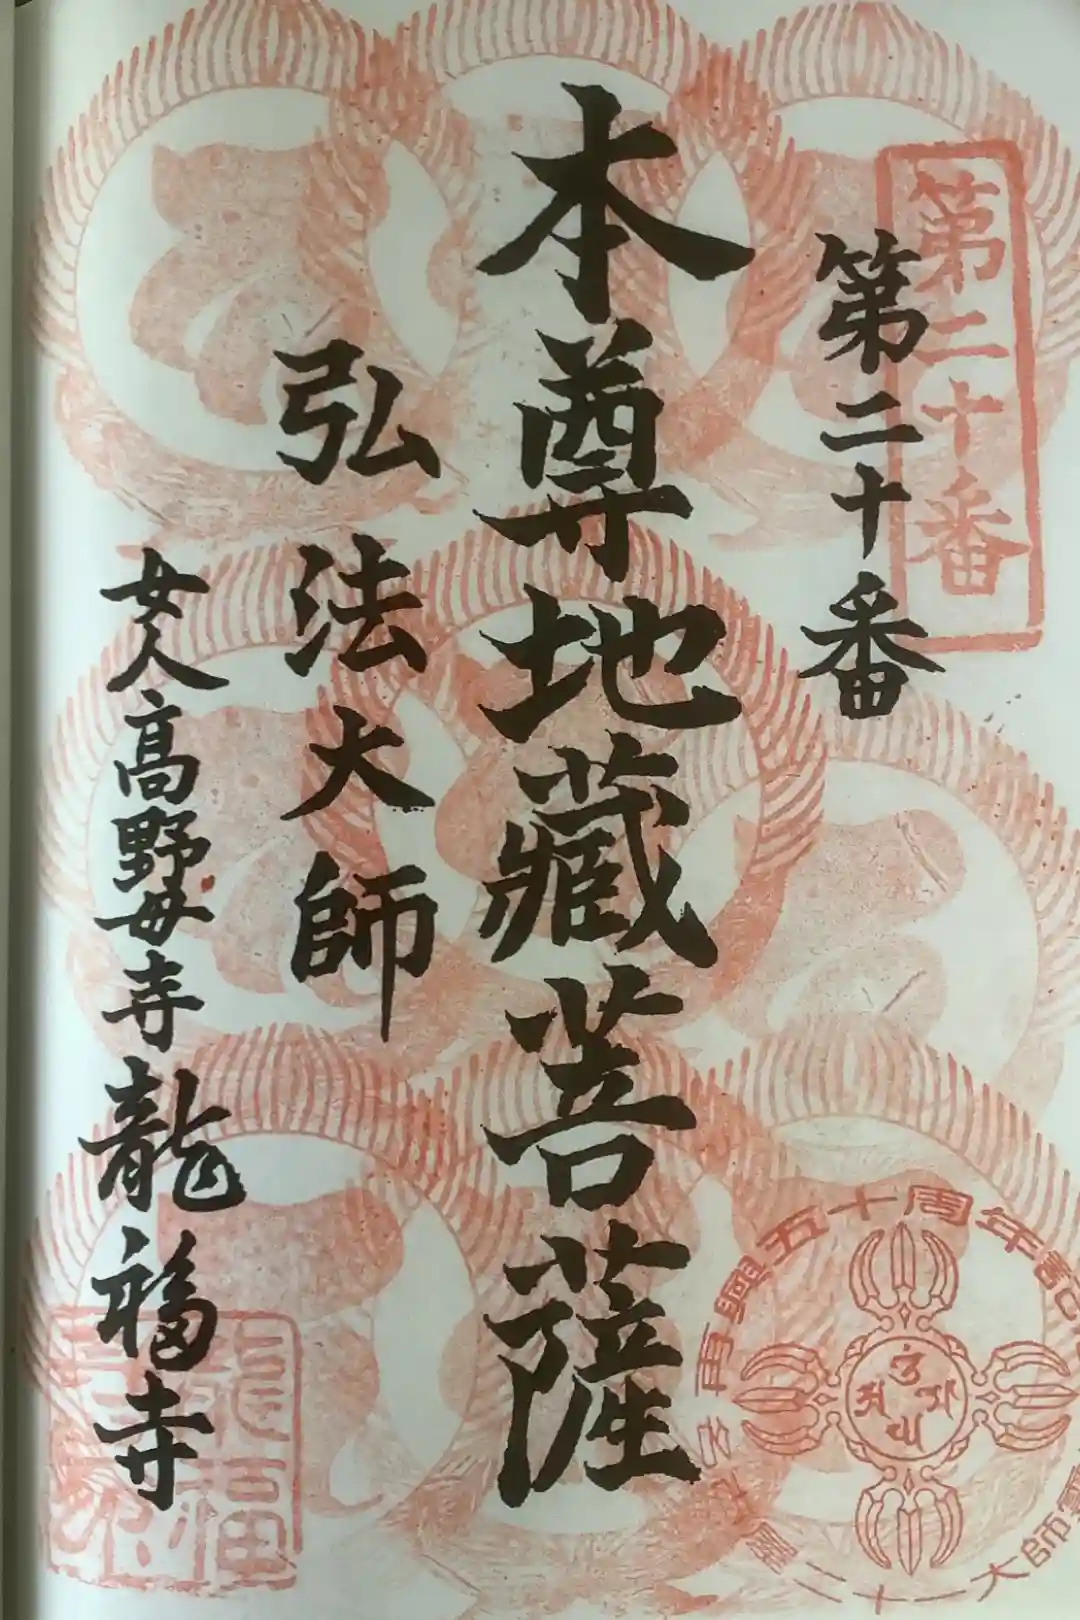 第二十番
第二十番
本尊地藏菩薩
弘法大師
女人高野母寺龍福寺
再興五十周年記
二十一大師霊
龍福